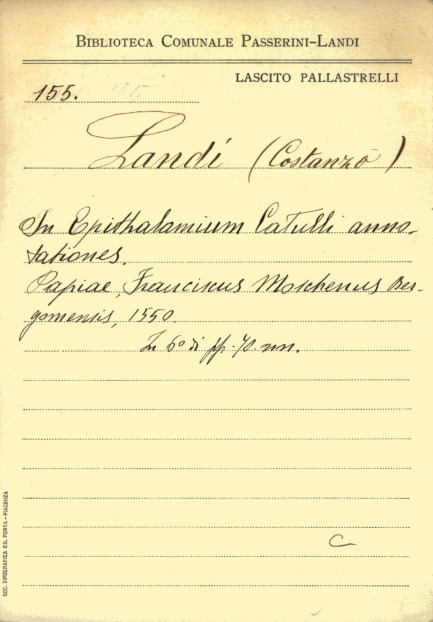 BIBLIOTECA COMUNALE PASSERINI-LANDI
LASCITO PALLASTRELLI
155.
Landi (Costanzo)
In Epithalamium Catulli anno-
tationes.
Papiae, Franciscus Moschenus Ber-
gomensis, 1550.
In 6° di pp. 70 nn.
C
SOC. TIPOGRAFICA ED. PORTA - PIACENZA